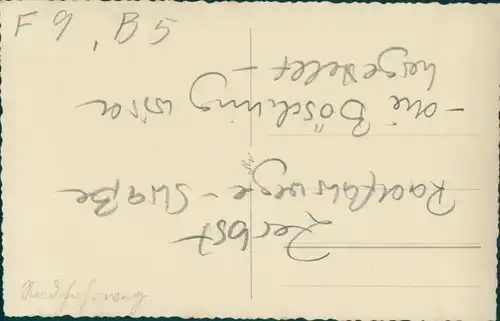 F 9, B 5
Zerbst
Radfahrwege-Straße
- die Böschung wird
hergestellt -